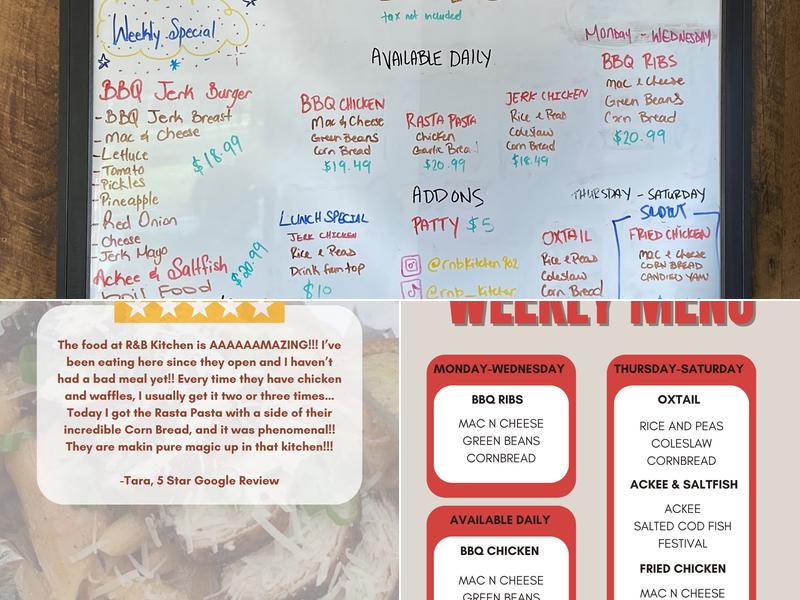 tax not included
Weekly Special
AVAILABLE DAILY
MONDAY - WEDNESDAY
BBQ Jerk Burger
- BBQ Jerk Breast
- Mac & Cheese
- Lettuce
- Tomato
- Pickles
- Pineapple
- Red Onion
- Cheese
- Jerk Mayo
$18.99
Ackee & Saltfish
$20.99
Boil Food
BBQ CHICKEN
Mac & Cheese
Green Beans
Corn Bread
$19.49
RASTA PASTA
Chicken
Garlic Bread
$20.99
JERK CHICKEN
Rice & Peas
Coleslaw
Corn Bread
$18.49
BBQ RIBS
mac & cheese
Green Beans
Corn Bread
$20.99
LUNCH SPECIAL
JERK CHICKEN
Rice & Peas
Drink from top
$10
ADD ONS
PATTY $5
@rnbkitchen902
@rnb_kitchen
THURSDAY - SATURDAY
OXTAIL
Rice & Peas
Coleslaw
Corn Bread
FRIED CHICKEN
mac & cheese
CORN BREAD
CANDIED YAM
The food at R&B Kitchen is AAAAAAMAZING!!! I've
been eating here since they open and I haven't
had a bad meal yet!! Every time they have chicken
and waffles, I usually get it two or three times...
Today I got the Rasta Pasta with a side of their
incredible Corn Bread, and it was phenomenal!!
They are makin pure magic up in that kitchen!!!
-Tara, 5 Star Google Review
WEEKLY MENU
MONDAY-WEDNESDAY
BBQ RIBS
MAC N CHEESE
GREEN BEANS
CORNBREAD
AVAILABLE DAILY
BBQ CHICKEN
MAC N CHEESE
GREEN BEANS
THURSDAY-SATURDAY
OXTAIL
RICE AND PEAS
COLESLAW
CORNBREAD
ACKEE & SALTFISH
ACKEE
SALTED COD FISH
FESTIVAL
FRIED CHICKEN
MAC N CHEESE